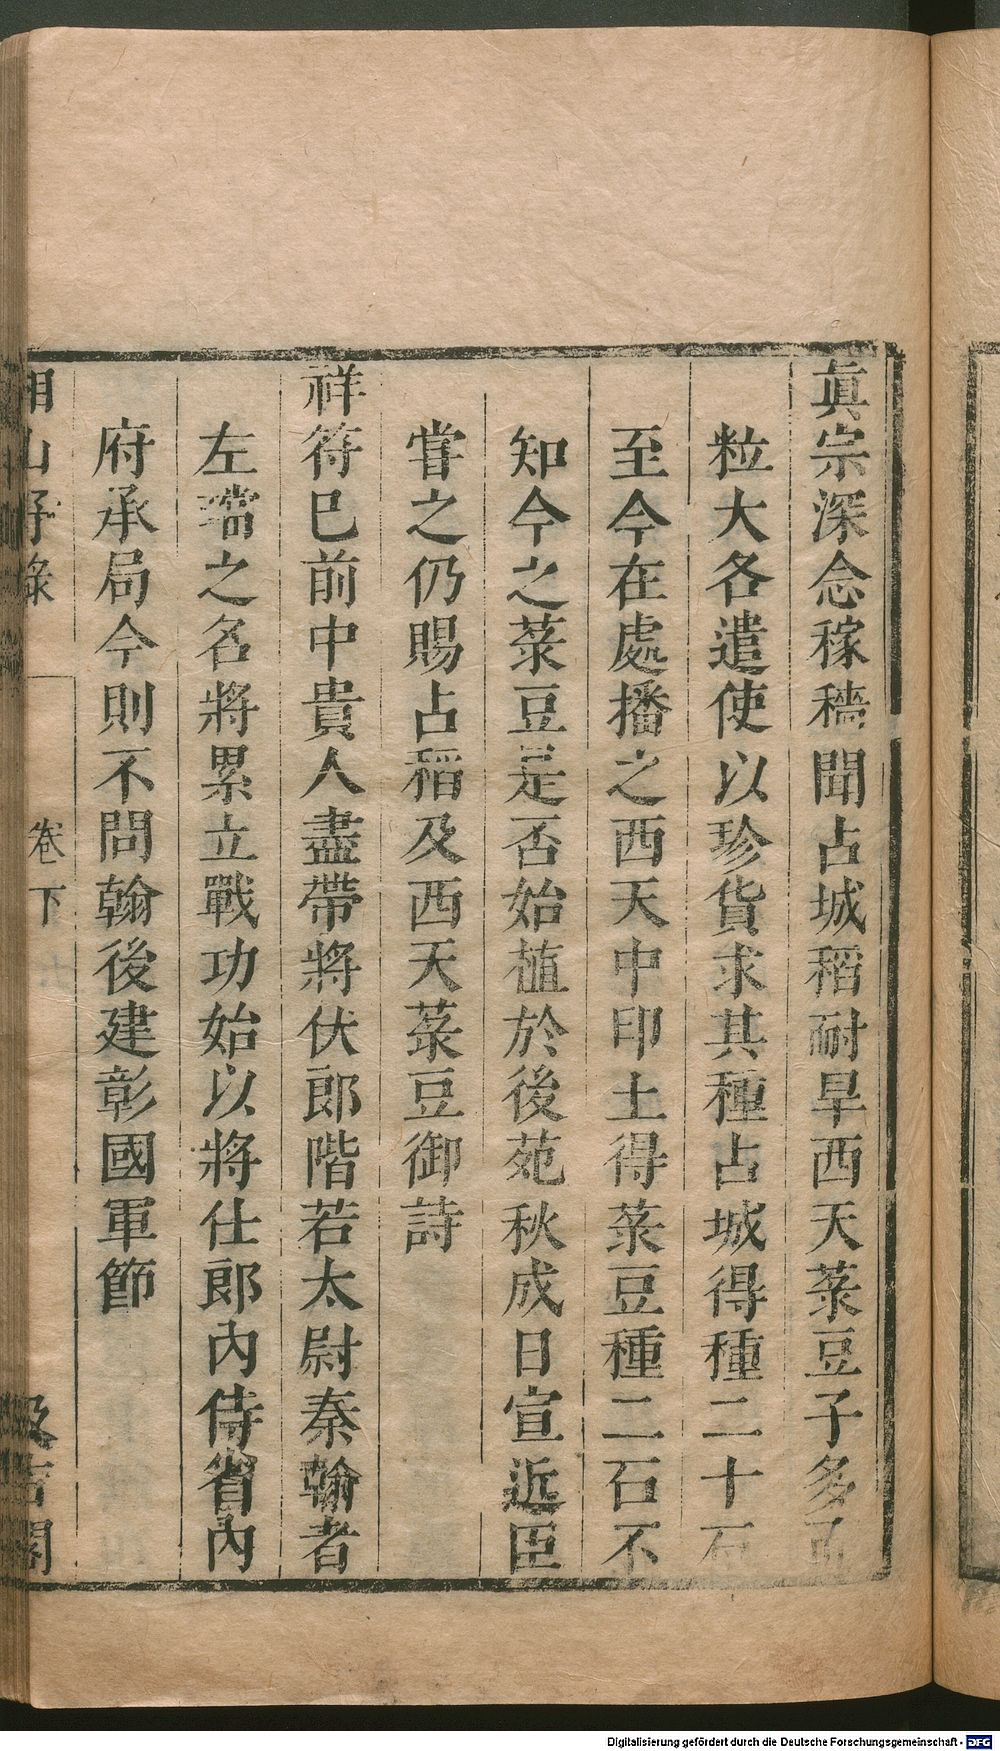 眞宗深念稼穡聞占城稻耐旱西天菉豆子多而
粒大各遣使以珍貨求其種占城得種二十石
至今在處播之西天中印土得菉豆種二石不
知今之菉豆是否始植於後苑秋成日宣近臣
嘗之仍賜占稻及西天菉豆御詩
祥符已前中貴人盡帶將伏郎階若太尉秦翰者
左璫之名將累立戰功始以將仕郎內侍省內
府承局今則不問翰後建彰國軍節
湘山野錄 卷下 汲古閣
Digitalisierung gefördert durch die Deutsche Forschungsgemeinschaft - DFG